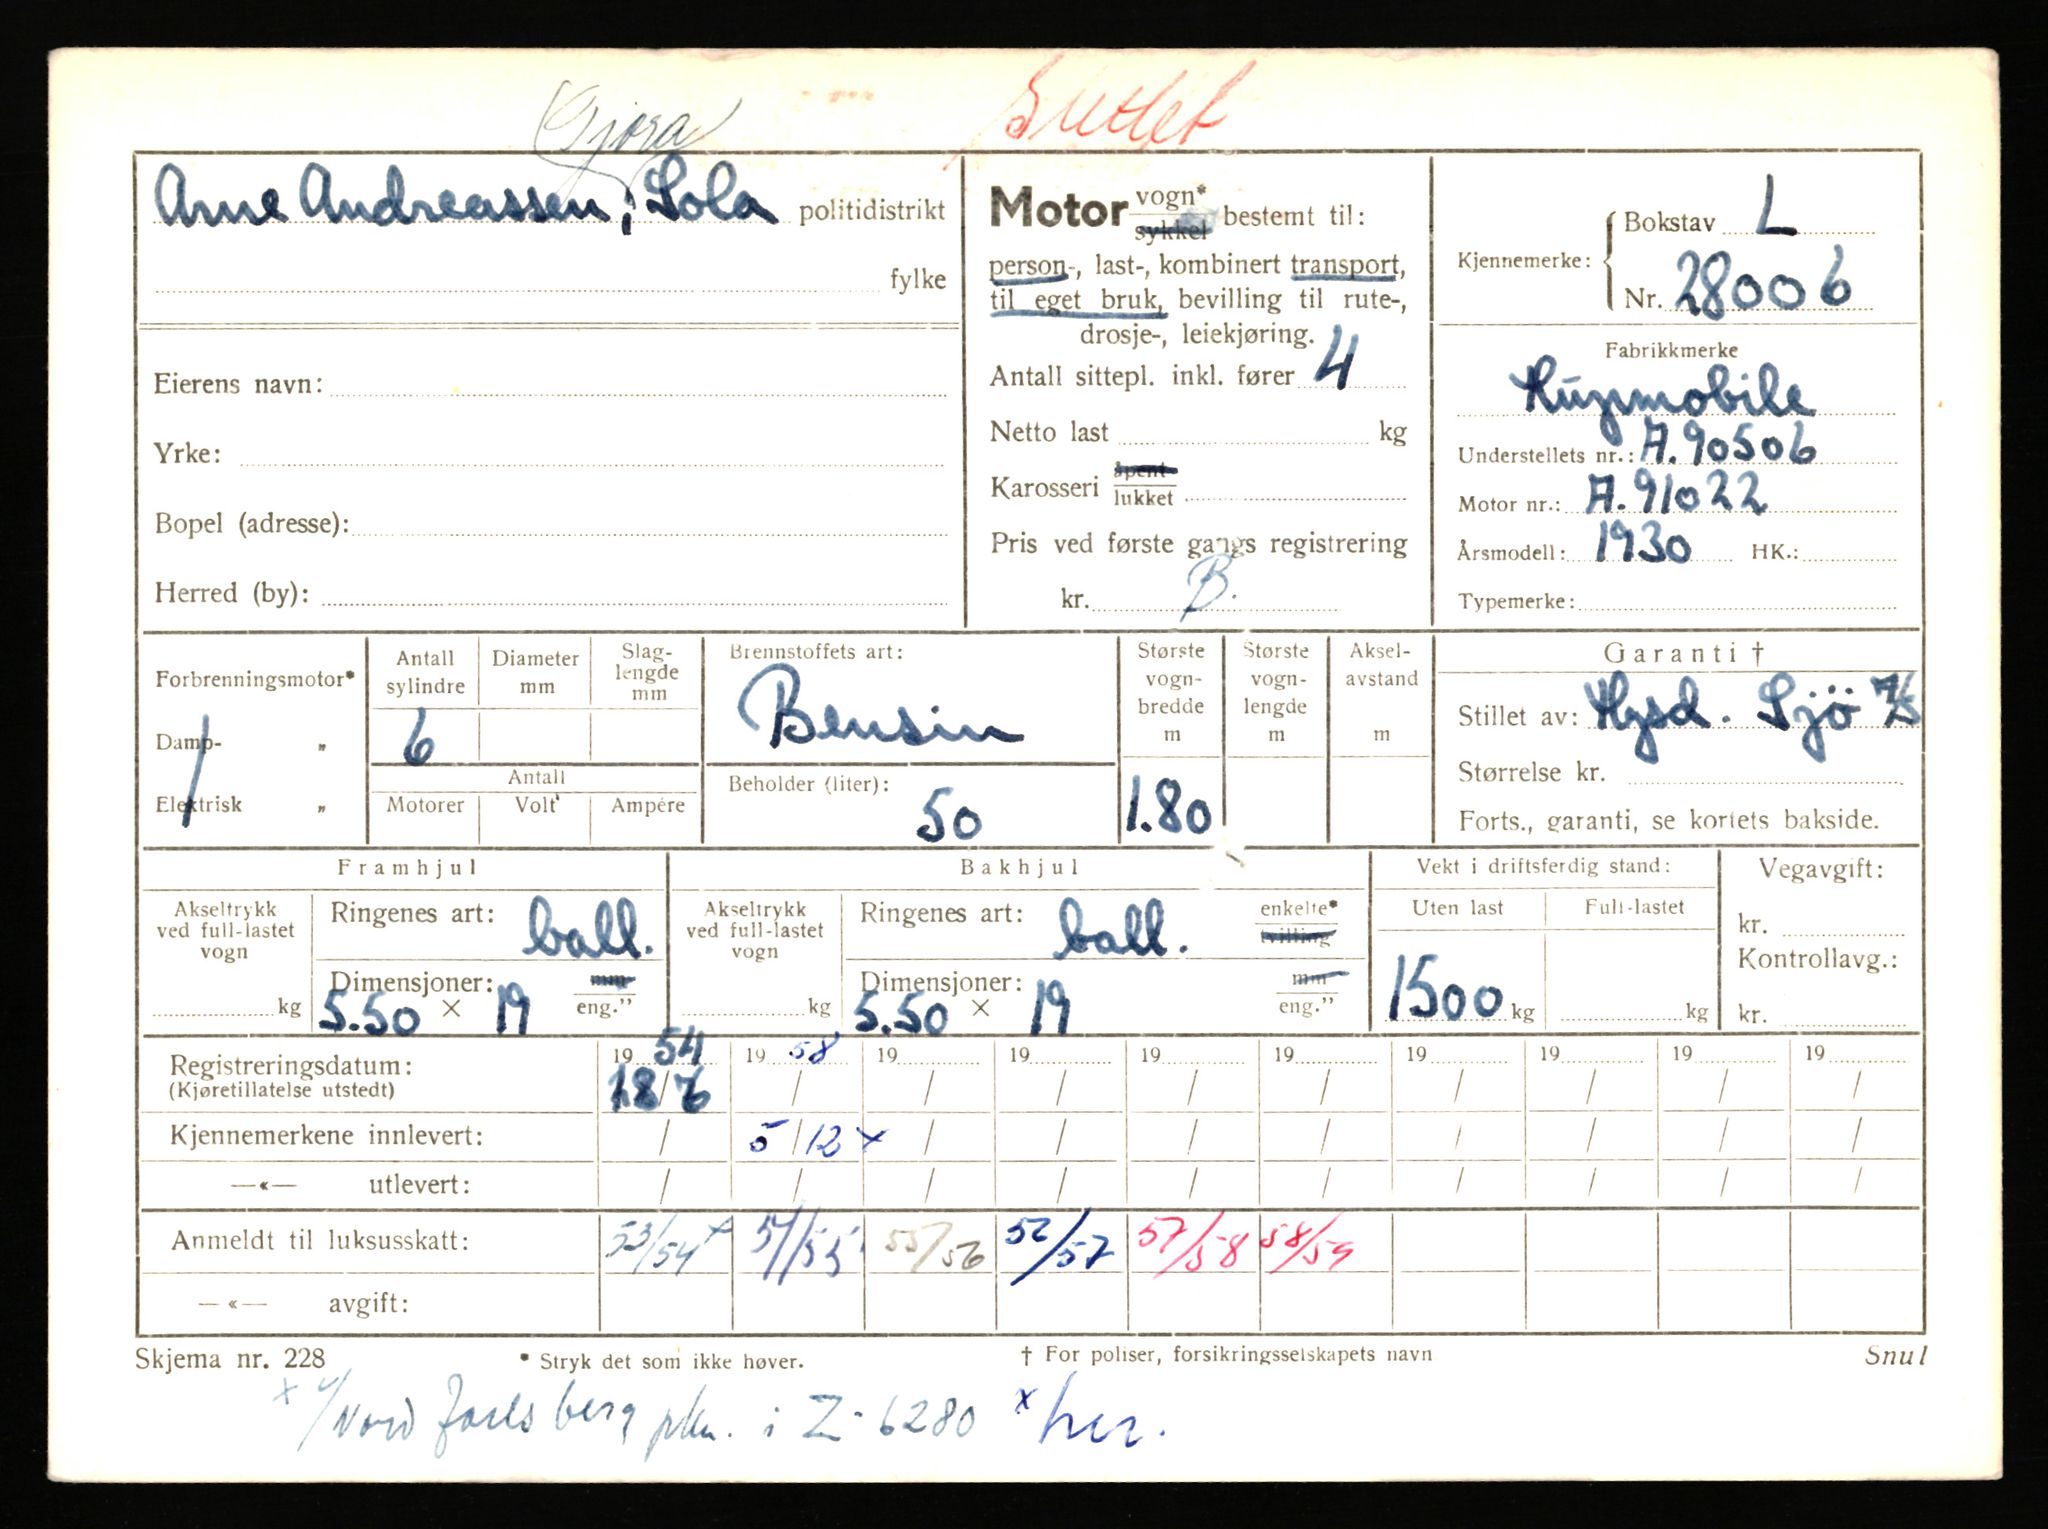 Gjøra
Slettet
Arne Andreassen, Sola politidistrikt
fylke
Eierens navn:
Yrke:
Bopel (adresse):
Herred (by):
Motor vogn* sykkel bestemt til:
person-, last-, kombinert transport,
til eget bruk, bevilling til rute-,
drosje-, leiekjøring.
Antall sittepl. inkl. fører 4
Netto last kg
Karosseri åpent lukket
Pris ved første gangs registrering
kr. B.
Kjennemerke: Bokstav L
Nr. 28006
Fabrikkmerke
Hupmobile
Understellets nr.: A.90506
Motor nr.: A.91022
Årsmodell: 1930 HK.:
Typemerke:
Forbrenningsmotor*
Damp- „
Elektrisk „
Antall sylindre
6
Diameter mm
Slag-lengde mm
Antall
Motorer Volt Ampére
Brennstoffets art:
Bensin
Beholder (liter):
50
Største vogn-bredde m
1.80
Største vogn-lengde m
Aksel-avstand m
Garanti †
Stillet av: Hysd. Sjö
Størrelse kr.
Forts., garanti, se kortets bakside.
Framhjul
Akseltrykk ved full-lastet vogn
kg
Ringenes art: ball.
Dimensjoner: mm
5.50 × 19 eng.”
Bakhjul
Akseltrykk ved full-lastet vogn
kg
Ringenes art: ball. enkelte* tvilling
Dimensjoner: mm
5.50 × 19 eng.”
Vekt i driftsferdig stand:
Uten last Full-lastet
1500 kg kg
Vegavgift:
kr.
Kontrollavg.:
kr.
Registreringsdatum: 1954 1958 19 19 19 19 19 19 19 19
(Kjøretillatelse utstedt) 18/6 / / / / / / / / /
Kjennemerkene innlevert: / 5/12 x / / / / / / / /
—«— utlevert: / / / / / / / / / /
Anmeldt til luksusskatt: 53/54 x 54/55 55/56 56/57 57/58 58/59
—«— avgift:
Skjema nr. 228 * Stryk det som ikke høver. † For poliser, forsikringsselskapets navn Snul
x Nord Jarlsberg pkm. i Z-6280 x her.